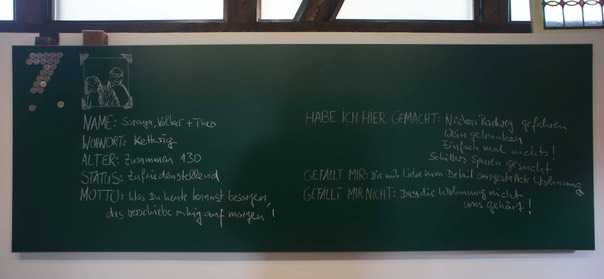 7.
NAME: Soraya, Volker + Theo
WOHNORT: Kettwig
ALTER: Zusammen 130
STATUS: Zufriedenstellend
MOTTO: Was Du heute kannst besorgen,
das verschiebe ruhig auf morgen!
HABE ICH HIER GEMACHT: Neckar Radweg gefahren
Wein getrunken
Einfach mal nichts!
Schillers Spuren gesucht
GEFÄLLT MIR: Die mit Liebe zum Detail ausgestattete Wohnung
GEFÄLLT MIR NICHT: Dass die Wohnung nicht
uns gehört!